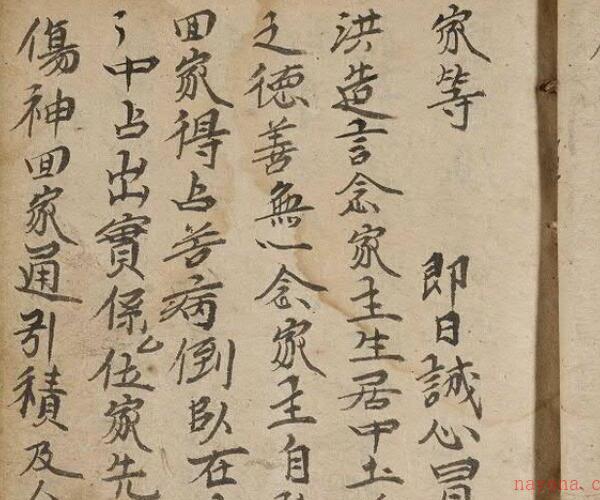 家等　即日誠心冒
洪造言念家主生居中土
之德善無一念家主自
回家得占苦病倒臥在
〻中占出實係么位家先
傷神回家通引積及
nayona.c